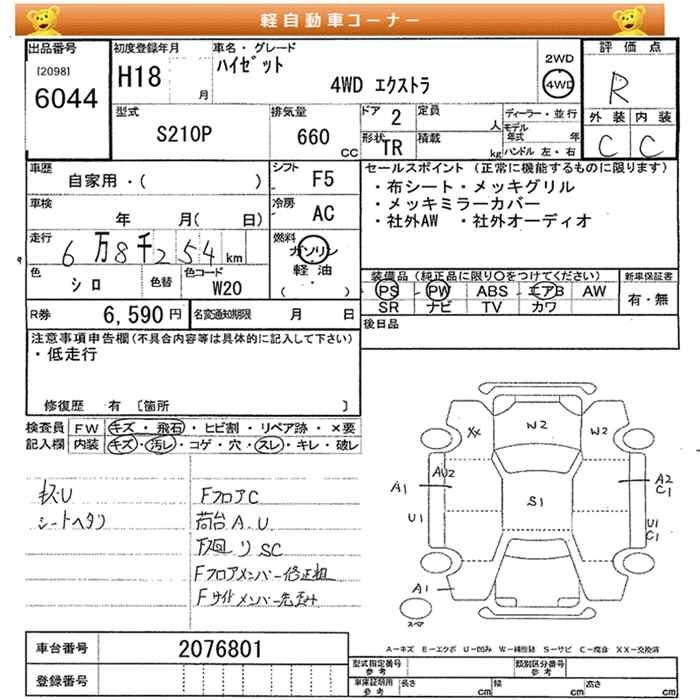 軽自動車コーナー
出品番号
[2098]
6044
初度登録年月
H18
月
車名・グレード
ハイゼット
4WD エクストラ
2WD
4WD
評価点
R
外装 内装
C C
型式
S210P
排気量
660
CC
ドア 2
定員
人
形状 TR
積載
kg
ディーラー・並行
モデル年式
年
ハンドル 左・右
車歴
自家用・( )
シフト F5
車検
年 月( 日)
冷房 AC
走行
6万8千254 km
燃料
ガソリン
軽油
( )
色
シロ
色替
色コード
W20
R券 6,590 円
名変通知期限 月 日
セールスポイント (正常に機能するものに限ります)
・布シート・メッキグリル
・メッキミラーカバー
・社外AW ・社外オーディオ
装備品 (純正品に限り○をつけてください)
PS PW ABS エアB AW
SR ナビ TV カワ
新車保証書
有・無
後日品
注意事項申告欄(不具合内容等は具体的に記入して下さい)
・低走行
修復歴 有 [箇所 ]
検査員
記入欄
FW キズ・飛石・ヒビ割・リペア跡・×要
内装 キズ・汚レ・コゲ・穴・スレ・キレ・破レ
キズU
シートヘタリ
FフロアC
荷台A.U
下廻りSC
Fフロアメンバー修正粗
Fサイドメンバー先歪み
XX
W2
W2
AU2
A1
U1
A1
S1
A2
C1
U1
C1
A−キズ E−エクボ U−凹み W−補修跡 S−サビ C−腐食 XX−交換済
車台番号
2076801
登録番号
型式指定番号
参考
類別区分番号
参考
車庫証明用
参考
長さ cm
幅 cm
高さ cm